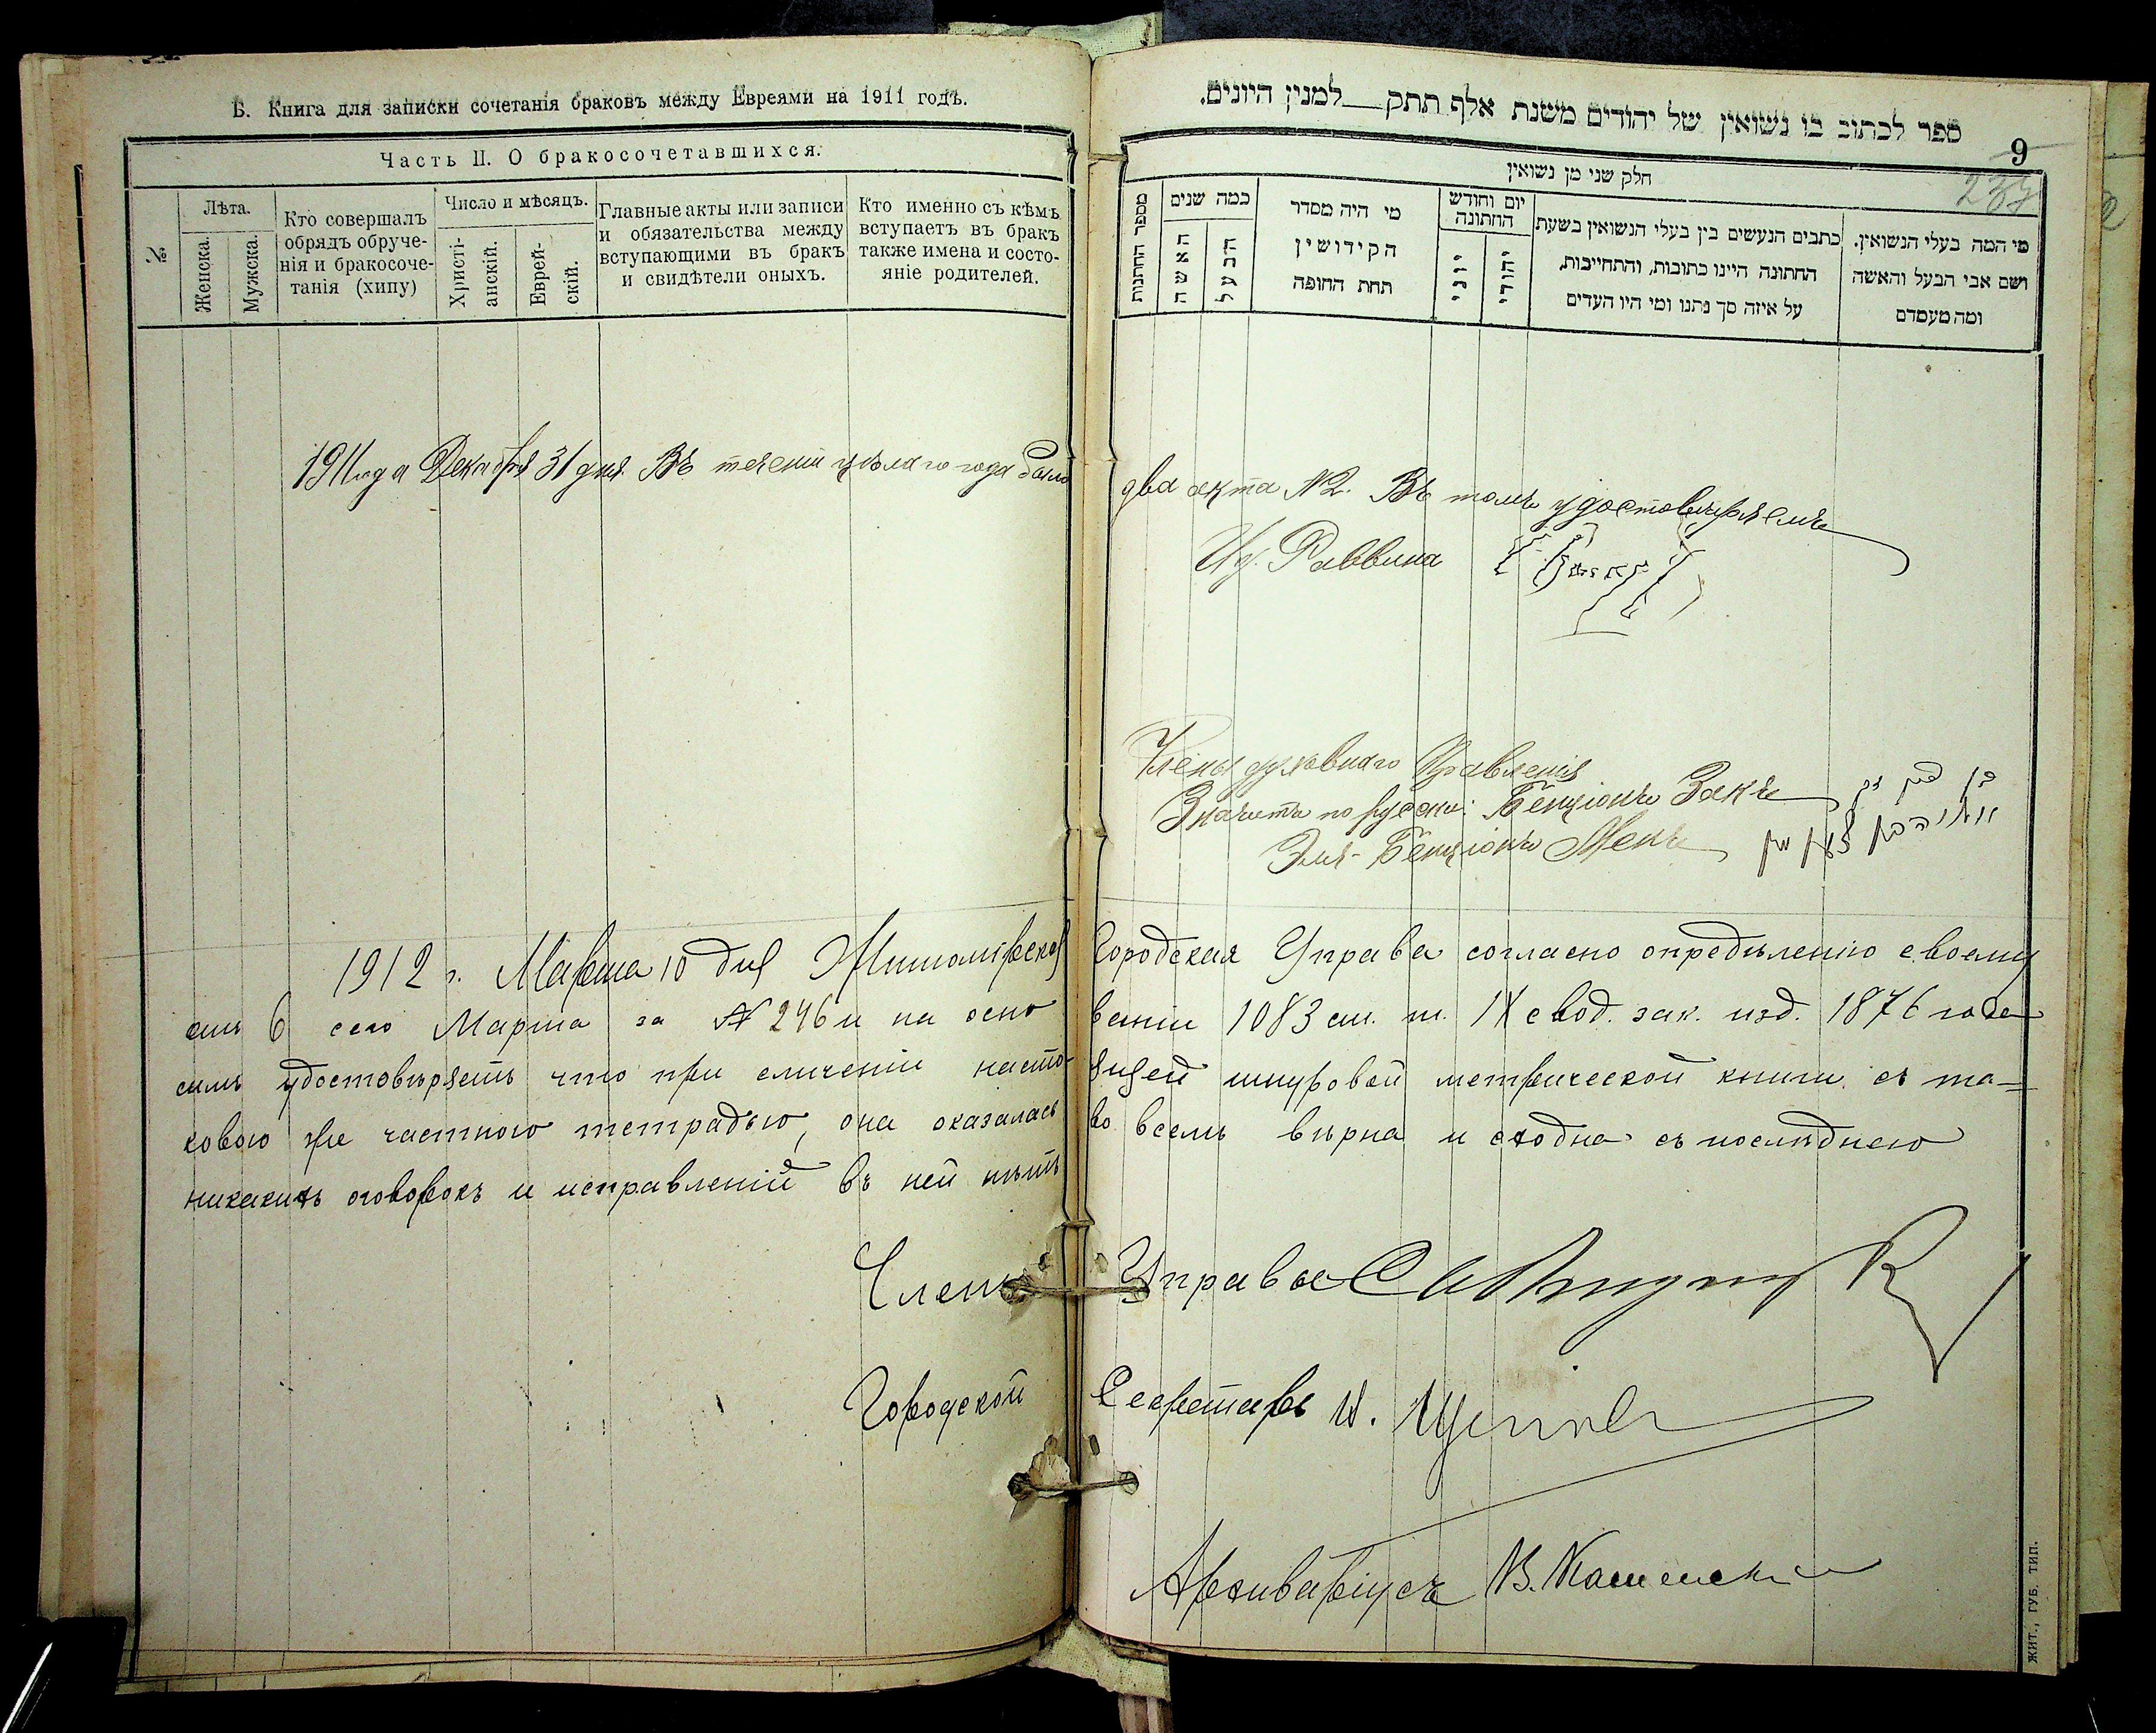 Б. Книга для записки сочетанія браковъ между Евреями на 1911 годъ.
Часть II. О бракосочетавшихся.
№
Лѣта.
Женска.
Мужска.
Кто совершалъ
обрядъ обруче-
нія и бракосоче-
танія (хипу)
Число и мѣсяцъ.
Христі-
анскій.
Еврей-
скій.
Главные акты или записи
и обязательства между
вступающими въ бракъ
и свидѣтели оныхъ.
Кто именно съ кѣмъ
вступаетъ въ бракъ
также имена и состо-
яніе родителей.
ספר לכתוב בו נשואין של יהודים משנת אלף תתק למנין היונים.
9
237
חלק שני מן נשואין
מספר החתונות
כמה שנים
האשה
הבעל
מי היה מסדר
הקידושין
תחת החופה
יום וחודש
החתונה
יוני
יהודי
כתבים הנעשים בין בעלי הנשואין בשעת
החתונה היינו כתובות, והתחייבות,
על איזה סך נתנו ומי היו העדים
מי המה בעלי הנשואין.
ושם אבי הבעל והאשה
ומה מעמדם
1911 года Декабря 31 дня Въ теченіи цѣлаго года было два акта №2. Въ томъ удостовѣряемъ
Ид. Раввина
Члены духовнаго Правленія
Значитъ по русски: Бенціонъ Закъ
Эля-Бенціонъ Менъ
1912 г. Марта 10 дня Житомірская Городская Управа согласно опредѣленію своему
6 сего Марта за № 246 и на осно ваніи 1083 ст. т. IX свод. зак. изд. 1876 года
симъ удостовѣряетъ что при сличеніи насто- ящей шнуровой метрической книги съ та-
ковою же частною тетрадью, она оказалась во всемъ вѣрна и сходна съ послѣднею
никакихъ оговорокъ и исправленій въ ней нѣтъ
Членъ Управы
Городской Секретарь И.
Архиваріусъ В. Каменскій
ЖИТ., ГУБ. ТИП.